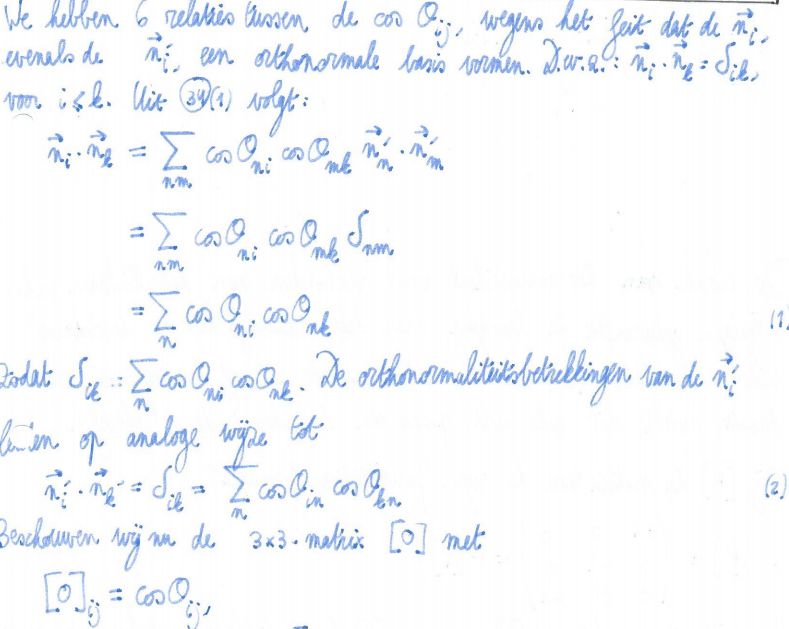 We hebben 6 relaties tussen de cos θ_ij, wegens het feit dat de n⃗_i,
evenals de n⃗'_i, een orthonormale basis vormen. D.w.z.: n⃗_i · n⃗_k = δ_ik,
voor i ≤ k. Uit (34)(1) volgt:
n⃗_i · n⃗_k = ∑_nm cos θ_ni cos θ_mk n⃗'_n · n⃗'_m
= ∑_nm cos θ_ni cos θ_mk δ_nm
= ∑_n cos θ_ni cos θ_nk (1)
Zodat δ_ik = ∑_n cos θ_ni cos θ_nk. De orthonormaliteitsbetrekkingen van de n⃗'_i
op analoge wijze tot
n⃗'_i · n⃗'_k = δ_ik = ∑_n cos θ_in cos θ_kn (2)
Beschouwen wij nu de 3×3-matrix [O] met
[O]_ij = cos θ_ij,